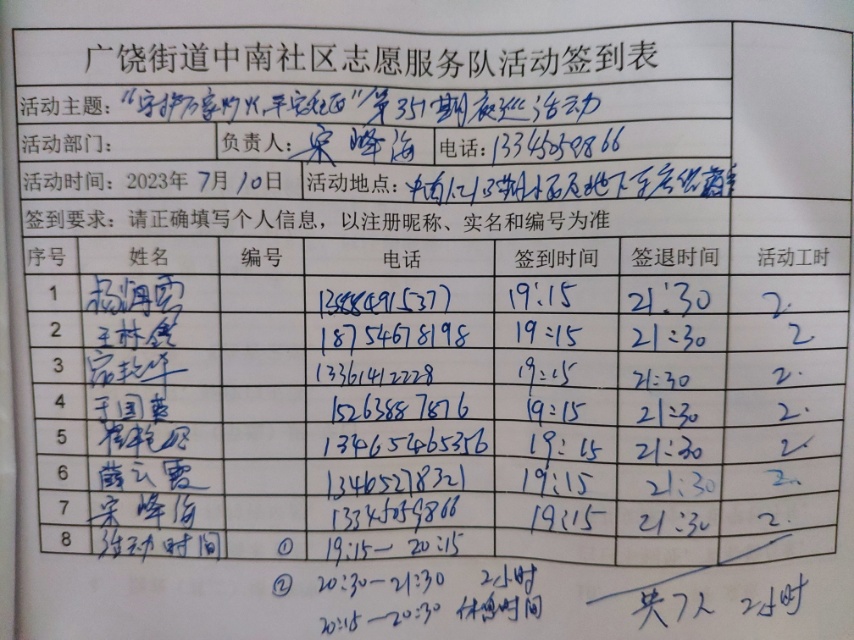 广饶街道中南社区志愿服务队活动签到表
活动主题：“守护万家灯火，平安社区”第351期夜巡活动
活动部门： 负责人：宋峰海 电话：13345059866
活动时间：2023年7月10日 活动地点：中南
签到要求：请正确填写个人信息，以注册昵称、实名和编号为准
序号 姓名 编号 电话 签到时间 签退时间 活动工时
1 13884915377 19:15 21:30 2.
2 18754678198 19:15 21:30 2
3 13361412228 19:15 21:30 2.
4 于国英 15263887876 19:15 21:30 2.
5 13465465356 19:15 21:30 2
6 薛云霞 13465278321 19:15 21:30 2.
7 宋峰海 13345059866 19:15 21:30 2.
8 活动时间 ① 19:15—20:15
② 20:30—21:30 2小时
20:15—20:30 休息时间
共7人 2小时